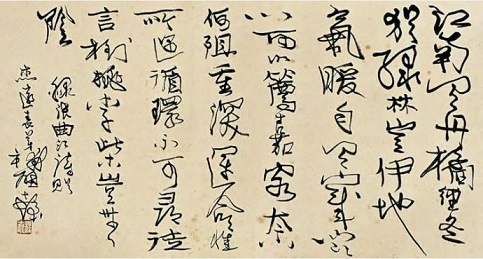 江南有丹橘經冬
猶綠林豈伊地
氣暖自有歲寒
心可以薦嘉客奈
何阻重深運命惟
所遇循環不可尋徒
言樹桃李此木豈無
陰
錄張曲江詩